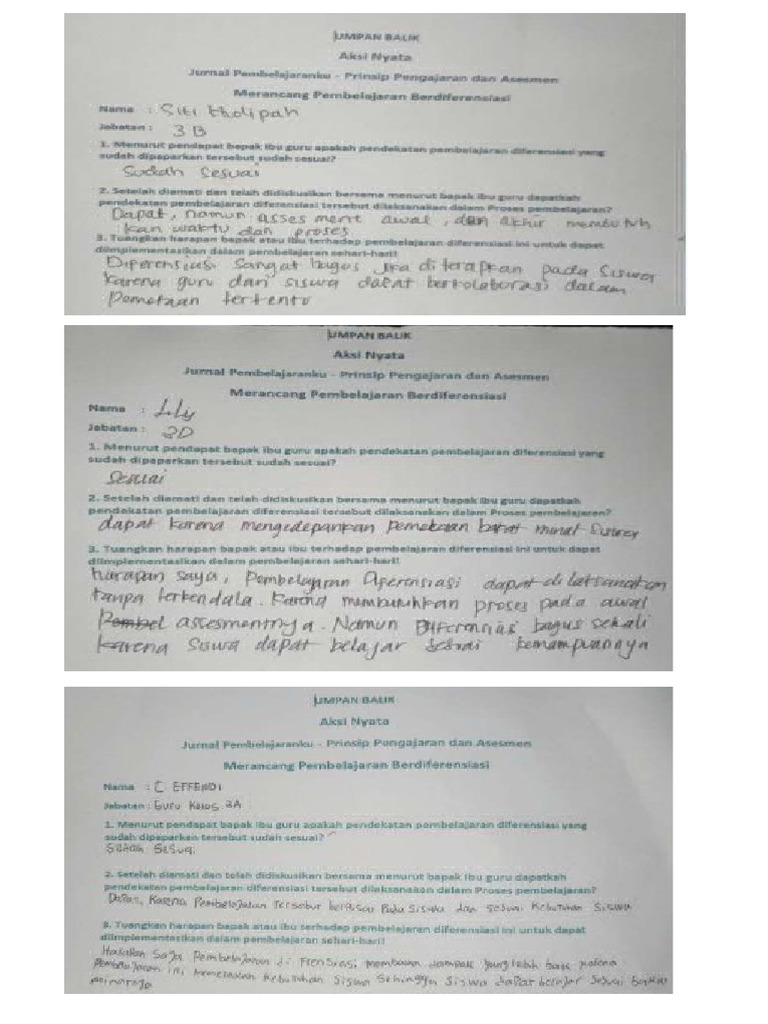 UMPAN BALIK
Aksi Nyata
Jurnal Pembelajaranku - Prinsip Pengajaran dan Asesmen
Merancang Pembelajaran Berdiferensiasi
Nama : Siti Kholipah
Jabatan : 3B
1. Menurut pendapat bapak ibu guru apakah pendekatan pembelajaran diferensiasi yang
sudah dipaparkan tersebut sudah sesuai?
Sudah Sesuai
2. Setelah diamati dan telah didiskusikan bersama menurut bapak ibu guru dapatkah
pendekatan pembelajaran diferensiasi tersebut dilaksanakan dalam Proses pembelajaran?
Dapat, namun asses ment awal, dan akhir membutuh
kan waktu dan proses
3. Tuangkan harapan bapak atau ibu terhadap pembelajaran diferensiasi ini untuk dapat
diimplementasikan dalam pembelajaran sehari-hari!
Diferensiasi Sangat bagus jika diterapkan pada Siswa
Karena guru dan siswa dapat berkolaborasi dalam
Pemetaan tertentu
UMPAN BALIK
Aksi Nyata
Jurnal Pembelajaranku - Prinsip Pengajaran dan Asesmen
Merancang Pembelajaran Berdiferensiasi
Nama : Lly
Jabatan : 3D
1. Menurut pendapat bapak ibu guru apakah pendekatan pembelajaran diferensiasi yang
sudah dipaparkan tersebut sudah sesuai?
Sesuai
2. Setelah diamati dan telah didiskusikan bersama menurut bapak ibu guru dapatkah
pendekatan pembelajaran diferensiasi tersebut dilaksanakan dalam Proses pembelajaran?
dapat karena mengedepankan pemetaan bakat minat Siswa
3. Tuangkan harapan bapak atau ibu terhadap pembelajaran diferensiasi ini untuk dapat
diimplementasikan dalam pembelajaran sehari-hari!
harapan saya, Pembelajaran Diferensiasi dapat dilaksanakan
tanpa terkendala. Karena membutuhkan proses pada awal
assesmentnya. Namun Diferensiasi bagus sekali
karena siswa dapat belajar sesuai kemampuannya
UMPAN BALIK
Aksi Nyata
Jurnal Pembelajaranku - Prinsip Pengajaran dan Asesmen
Merancang Pembelajaran Berdiferensiasi
Nama : C EFFENDI
Jabatan : Guru Kelas 3A
1. Menurut pendapat bapak ibu guru apakah pendekatan pembelajaran diferensiasi yang
sudah dipaparkan tersebut sudah sesuai?
Sudah Sesuai
2. Setelah diamati dan telah didiskusikan bersama menurut bapak ibu guru dapatkah
pendekatan pembelajaran diferensiasi tersebut dilaksanakan dalam Proses pembelajaran?
Dapat, Karena Pembelajaran Tersebut Pada Siswa dan sesuai Kebutuhan Siswa
3. Tuangkan harapan bapak atau ibu terhadap pembelajaran diferensiasi ini untuk dapat
diimplementasikan dalam pembelajaran sehari-hari!
Harapan Saya Pembelajaran di Frensiasi membawa dampak yang lebih baik karena
Pembelajaran ini Kebutuhan Siswa Sehingga Siswa dapat belajar Sesuai bakat